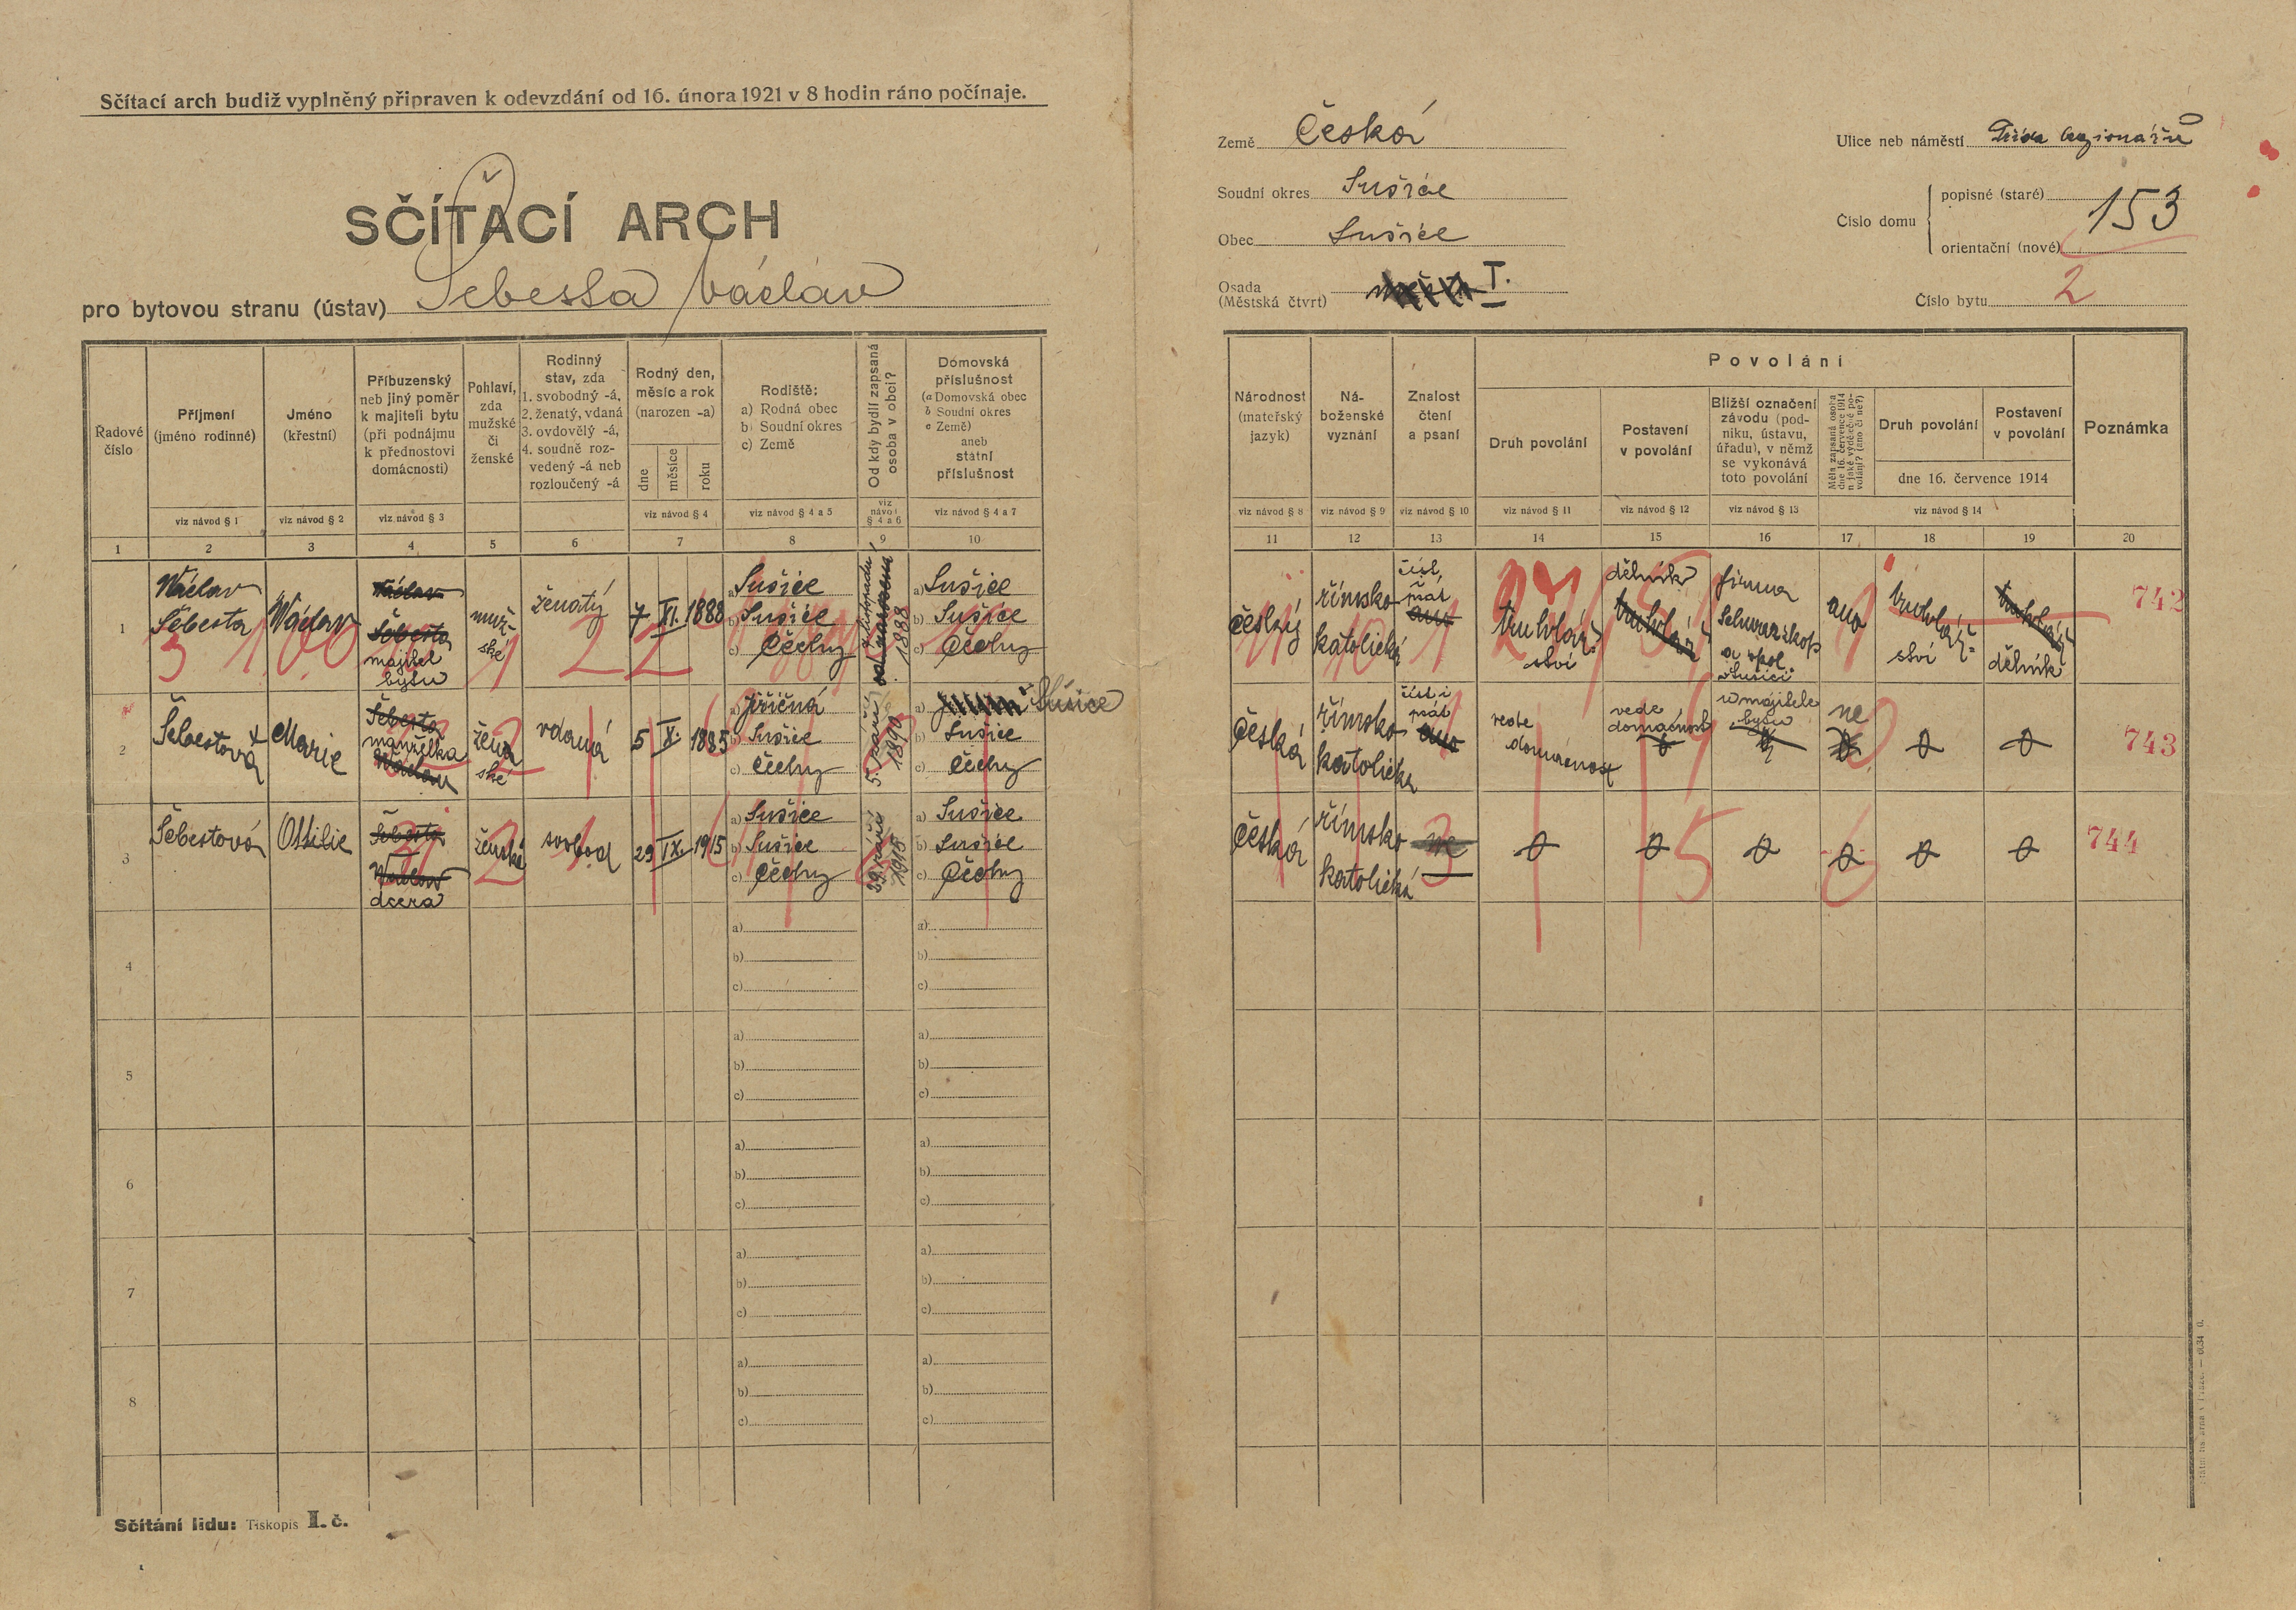 Sčítací arch budiž vyplněný připraven k odevzdání od 16. února 1921 v 8 hodin ráno počínaje.
SČÍTACÍ ARCH
pro bytovou stranu (ústav) Šebesta Václav
Země Česká
Soudní okres Sušice
Obec Sušice
Osada
(Městská čtvrť) I.
Ulice neb náměstí Třída legionářů
Číslo domu
popisné (staré) 153
orientační (nové)
Číslo bytu 2
Řadové číslo
Příjmení
(jméno rodinné)
viz návod § 1
Jméno
(křestní)
viz návod § 2
Příbuzenský
neb jiný poměr
k majiteli bytu
(při podnájmu
k přednostovi
domácnosti)
viz návod § 3
Pohlaví,
zda
mužské
či
ženské
Rodinný
stav, zda
1. svobodný -á,
2. ženatý, vdaná
3. ovdovělý -á,
4. soudně roz-
vedený -á neb
rozloučený -á
Rodný den,
měsíc a rok
(narozen -a)
dne
měsíce
roku
viz návod § 4
Rodiště:
a) Rodná obec
b) Soudní okres
c) Země
viz návod § 4 a 5
Od kdy bydlí zapsaná
osoba v obci?
viz
návod
§ 4 a 6
Domovská
příslušnost
(a Domovská obec
b Soudní okres
c Země)
aneb
státní
příslušnost
viz návod § 4 a 7
Národnost
(mateřský
jazyk)
viz návod § 8
Ná-
boženské
vyznání
viz návod § 9
Znalost
čtení
a psaní
viz návod § 10
Povolání
Druh povolání
viz návod § 11
Postavení
v povolání
viz návod § 12
Bližší označení
závodu (pod-
niku, ústavu,
úřadu), v němž
se vykonává
toto povolání
viz návod § 13
Měla zapsaná osoba
dne 16. července 1914
nějaké výdělečné po-
volání? (ano či ne?)
Druh povolání
Postavení
v povolání
dne 16. července 1914
viz návod § 14
Poznámka
1 2 3 4 5 6 7 8 9 10 11 12 13 14 15 16 17 18 19 20
1
Václav
Šebesta
Václav
Václav
Šebesta
majitel
bytu
muž-
ské
ženatý
7 XI. 1888
a) Sušice
b) Sušice
c) Čechy
od narození
7. listopadu
1888
a) Sušice
b) Sušice
c) Čechy
český
římsko
katolické
číst
psát
ano
truhlář-
ství
dělník
truhlář
firma
Schwarzkopf
a spol.
v Sušici
ano
truhlář-
ství
truhlář
dělník
742
2
Šebestová
Marie
Šebesta
manželka
Václav
žen
ské
vdaná
5 X. 1885
a) Jiřičná
b) Sušice
c) Čechy
5. září
1890
a) Sušice
b) Sušice
c) Čechy
česká
římsko
katolická
číst i
psát
ano
vede
domácnost
vede
domácnost
u majitele
bytu
ne
743
3
Šebestová
Ottilie
Šebesta
Václav
dcera
ženské
svobod
29 IX. 1915
a) Sušice
b) Sušice
c) Čechy
29. září
1915
a) Sušice
b) Sušice
c) Čechy
česká
římsko
katolická
ne
744
4
a)
b)
c)
a)
b)
c)
5
a)
b)
c)
a)
b)
c)
6
a)
b)
c)
a)
b)
c)
7
a)
b)
c)
a)
b)
c)
8
a)
b)
c)
a)
b)
c)
Sčítání lidu: Tiskopis I. č.